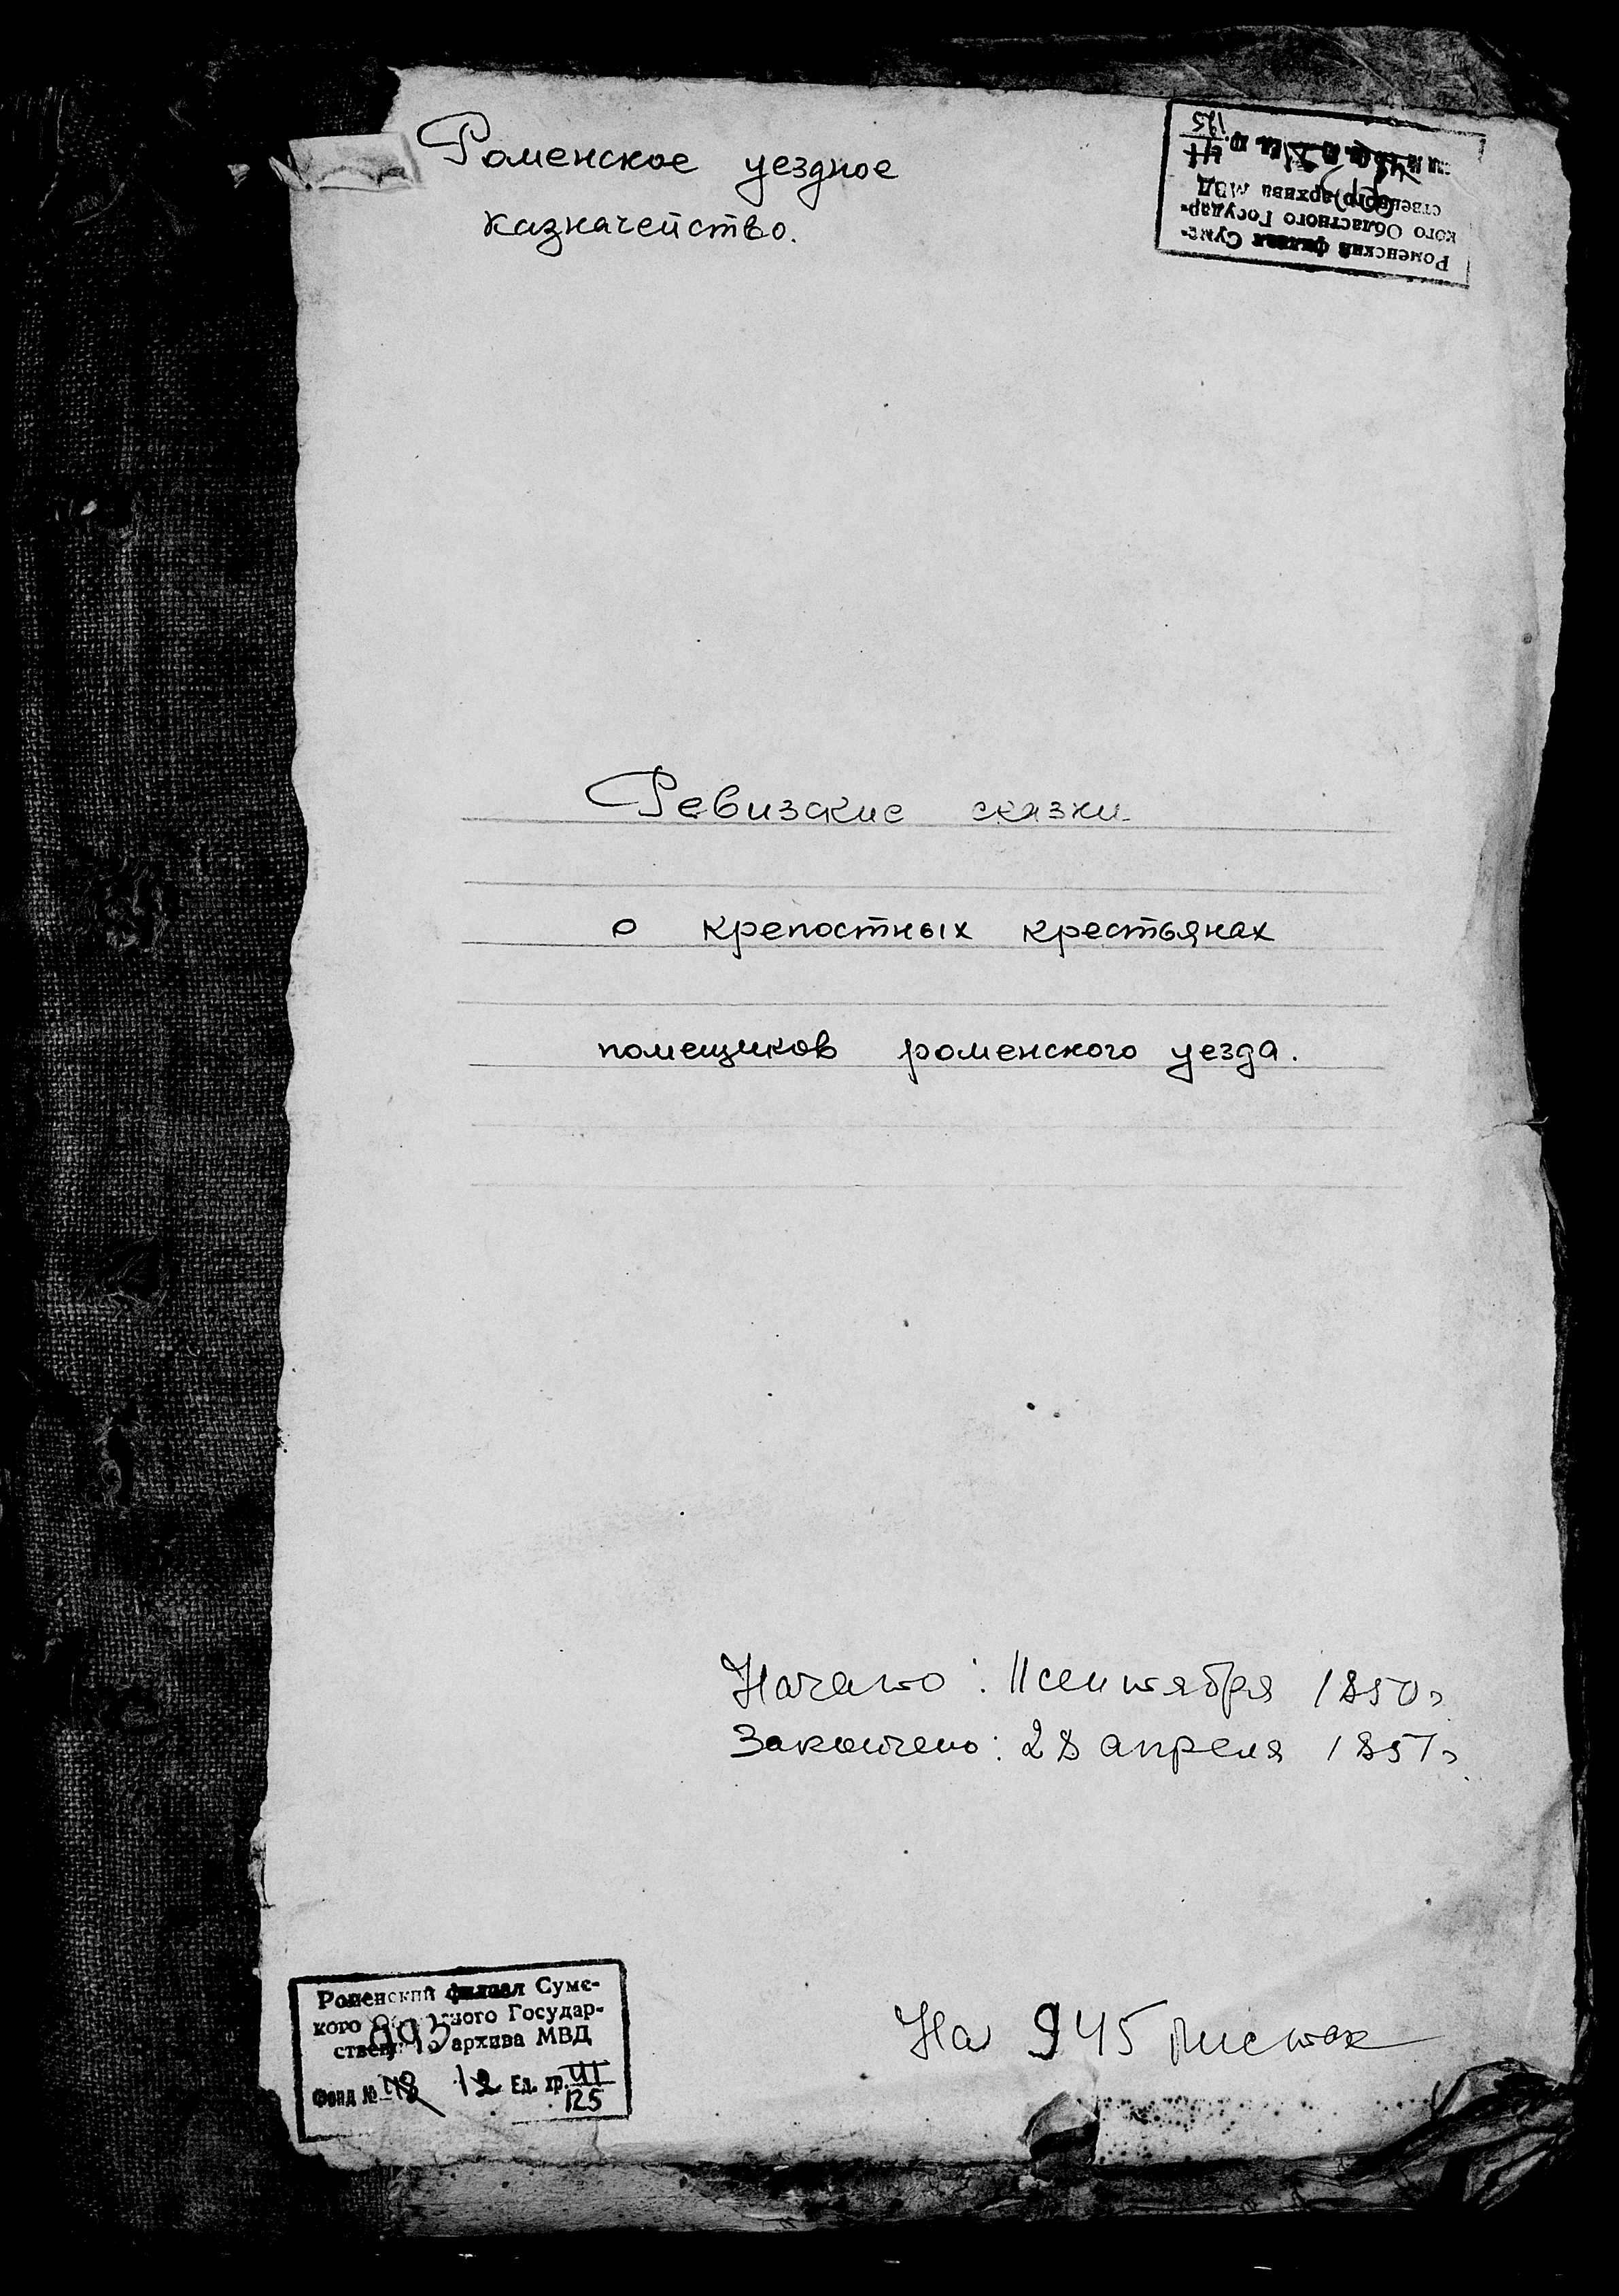 Роменское уездное
казначейство.
Роменский филиал Сумс-
кого Областного Государ-
ственного архива МВД
125
Ревизские сказки
о крепостных крестьянах
помещиков роменского уезда.
Начато: 11 сентября 1850 г.
Закончено: 28 апреля 1851 г.
На 945 листах
Роменский филиал Сумс-
кого Областного Государ-
ственного архива МВД
993
Фонд № 48 Ед. хр. III
125